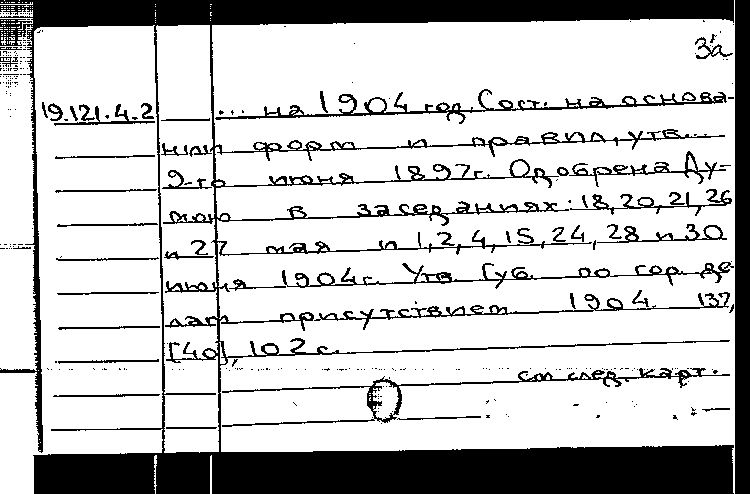 3а
19.121.4.2 ... на 1904 год. Сост. на основа-
нии форм и правил, утв...
9-го июня 1897г. Одобрена Ду-
мою в заседаниях: 18, 20, 21, 26
и 27 мая и 1, 2, 4, 15, 24, 28 и 30
июня 1904г. Утв. Губ. по гор. де
лам присутствием. 1904. 137,
[40], 102 с.
см след. карт.